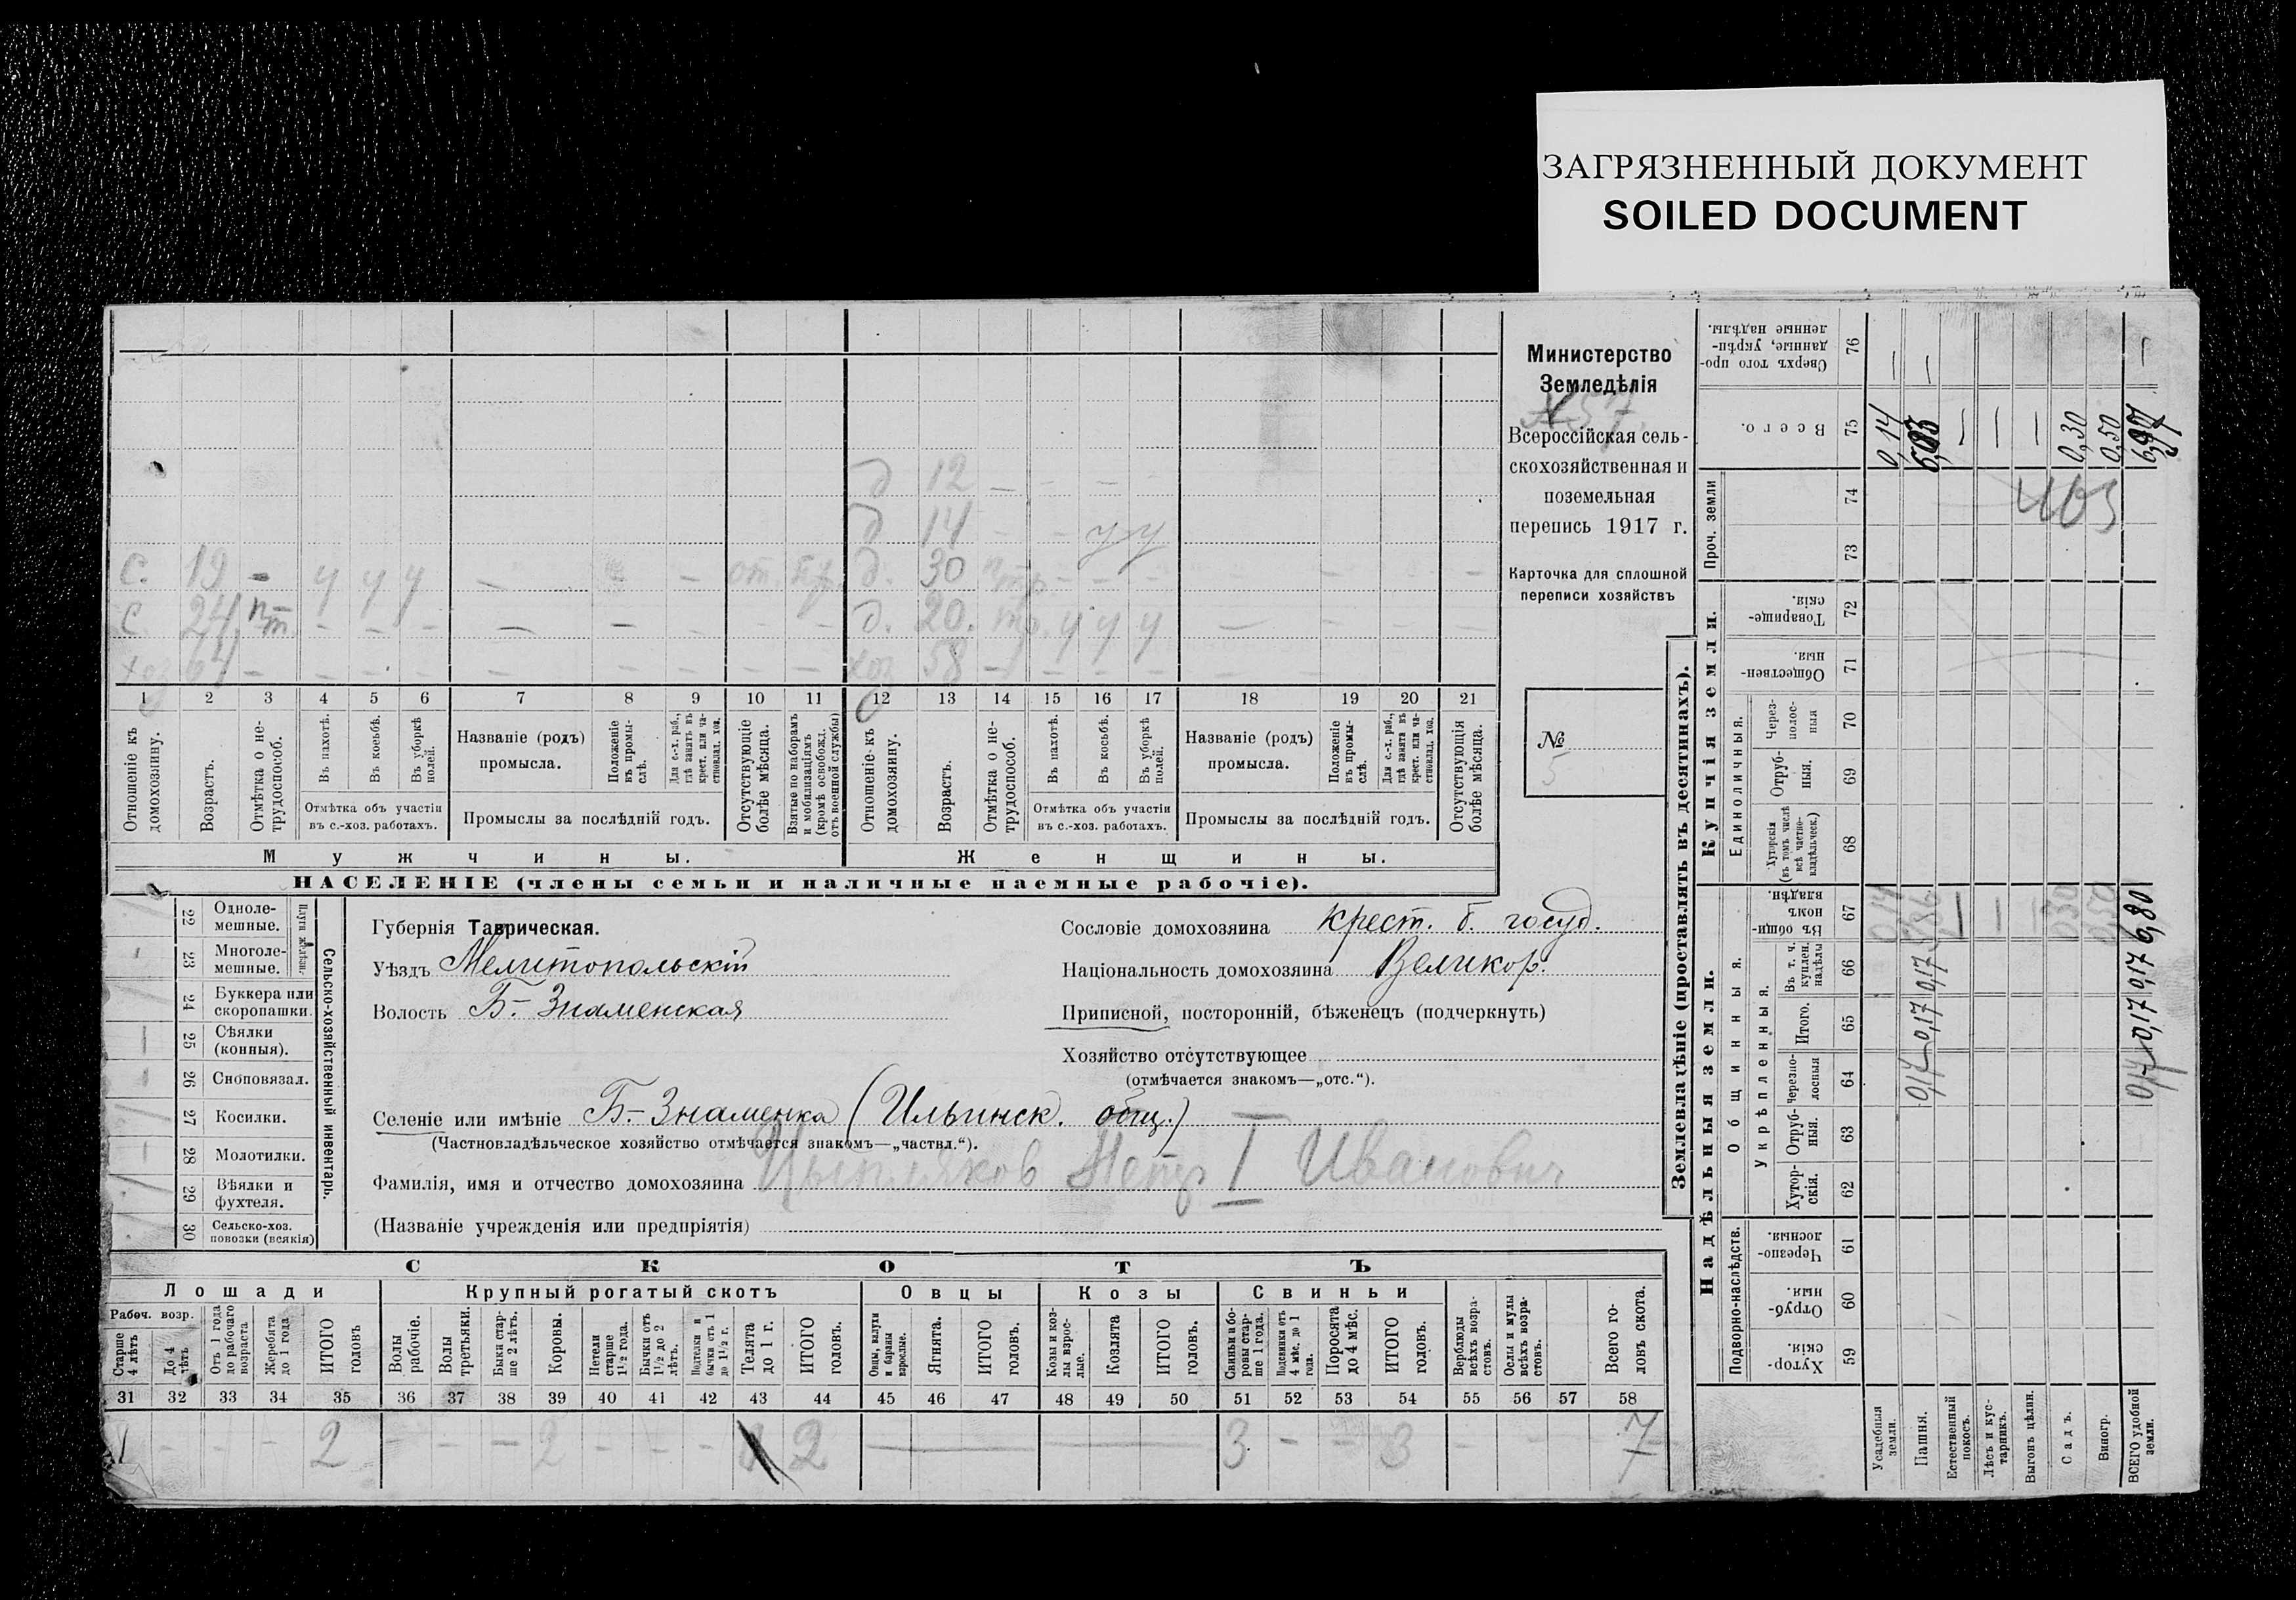 ЗАГРЯЗНЕННЫЙ ДОКУМЕНТ
SOILED DOCUMENT
Министерство
Земледѣлія
Всероссійская сель-
скохозяйственная и
поземельная
перепись 1917 г.
Карточка для сплошной
переписи хозяйствъ
№
5
д 12 — — — —
д 14 — — у у
с. 19 — у у у — — от. д. 30 — — —
с 24 — — — — — д. 20. у у у — — — —
хоз 64 — — — — — — — — — хоз 58 — — — — — — — —
1 2 3 4 5 6 7 8 9 10 11 12 13 14 15 16 17 18 19 20 21
Отношеніе къ домохозяину.
Возрастъ.
Отмѣтка о не-трудоспособ.
Въ пахотѣ.
Въ косьбѣ.
Въ уборкѣ полей.
Отмѣтка объ участіи
въ с.-хоз. работахъ.
Названіе (родъ)
промысла.
Положеніе въ промы-слѣ.
Для с.-х. раб., гдѣ занятъ въ крест. или ча-стновлад. хоз.
Промыслы за послѣдній годъ.
Отсутствующіе болѣе мѣсяца.
Взятые по наборамъ и мобилизаціямъ (кромѣ освобожд. отъ военной службы)
Отношеніе къ домохозяину.
Возрастъ.
Отмѣтка о не-трудоспособ.
Въ пахотѣ.
Въ косьбѣ.
Въ уборкѣ полей.
Отмѣтка объ участіи
въ с.-хоз. работахъ.
Названіе (родъ)
промысла.
Положеніе въ промы-слѣ.
Для с.-х. раб., гдѣ занята въ крест. или ча-стновлад. хоз.
Промыслы за послѣдній годъ.
Отсутствующія болѣе мѣсяца.
Мужчины.
Женщины.
НАСЕЛЕНІЕ (члены семьи и наличные наемные рабочіе).
Сельско-хозяйственный инвентарь.
Плуги желѣзн.
22 Одноле-мешные.
23 Многоле-мешные.
24 Буккера или скоропашки.
25 Сѣялки (конныя).
26 Сноповязал.
27 Косилки.
28 Молотилки.
29 Вѣялки и фухтеля.
30 Сельско-хоз. повозки (всякія)
Губернія Таврическая.
Уѣздъ Мелитопольскій
Волость Б-Знаменская
Сословіе домохозяина крест. б. госуд.
Національность домохозяина Великор.
Приписной, посторонній, бѣженецъ (подчеркнуть)
Хозяйство отсутствующее
(отмѣчается знакомъ—„отс.“).
Селеніе или имѣніе Б-Знаменка (Ильинск. общ.)
(Частновладѣльческое хозяйство отмѣчается знакомъ—„частвл.“).
Фамилія, имя и отчество домохозяина Цыпляков Петр I Иванович
(Названіе учрежденія или предпріятія)
СКОТЪ
Лошади
Крупный рогатый скотъ
Овцы
Козы
Свиньи
Рабоч. возр.
Старше 4 лѣтъ
До 4 лѣтъ
Отъ 1 года до рабочаго возраста
Жеребята до 1 года
ИТОГО головъ
Волы рабочіе.
Волы третьяки.
Быки стар-ше 2 лѣтъ.
Коровы.
Нетели старше 1 1/2 года.
Бычки отъ 1 1/2 до 2 лѣтъ.
Подтелки и бычки отъ 1 до 1 1/2 г.
Телята до 1 г.
ИТОГО головъ.
Овцы, валухи и бараны взрослые.
Ягнята.
ИТОГО головъ.
Козы и коз-лы взрос-лые.
Козлята
ИТОГО головъ.
Свиньи и бо-ровы стар-ше 1 года.
Подсвинки отъ 4 мѣс. до 1 года.
Поросята до 4 мѣс.
ИТОГО головъ.
Верблюды всѣхъ возра-стовъ.
Ослы и мулы всѣхъ возра-стовъ.
Всего го-ловъ скота.
31 32 33 34 35 36 37 38 39 40 41 42 43 44 45 46 47 48 49 50 51 52 53 54 55 56 57 58
— — — 2 — — — 2 — — — 2 — — 3 — — 3 — — 7
Землевладѣніе (проставлять въ десятинахъ).
Надѣльныя земли.
Купчія земли.
Проч. земли
Подворно-наслѣдств.
Общинныя.
Укрѣпленныя.
Единоличныя.
Хутор-скія. 59
Отруб-ныя. 60
Черезпо-лосныя. 61
Хутор-скія. 62
Отруб-ныя. 63
Черезпо-лосныя 64
Итого. 65
Въ т. ч. куплен. надѣлы 66
Въ общи-номъ владѣн. 67
Хуторскія (въ томъ числѣ всѣ частно-владѣльческ.) 68
Отруб-ныя. 69
Через-полос-ныя 70
Обществен-ныя. 71
Товарище-скія. 72
73
74
Всего. 75
Сверхъ того про-данные, укрѣп-ленные надѣлы. 76
Усадебныя земли. 0,14 0,14 —
Пашня. 0,17 0,17 0,17 5,86 —
Естественный покосъ. — —
Лѣсъ и кус-тарникъ. — —
Выгонъ цѣлин. —
Садъ. 0,30 0,30
Виногр. 0,50 0,50
ВСЕГО удобной земли. 0,17 0,17 0,17 6,80 —